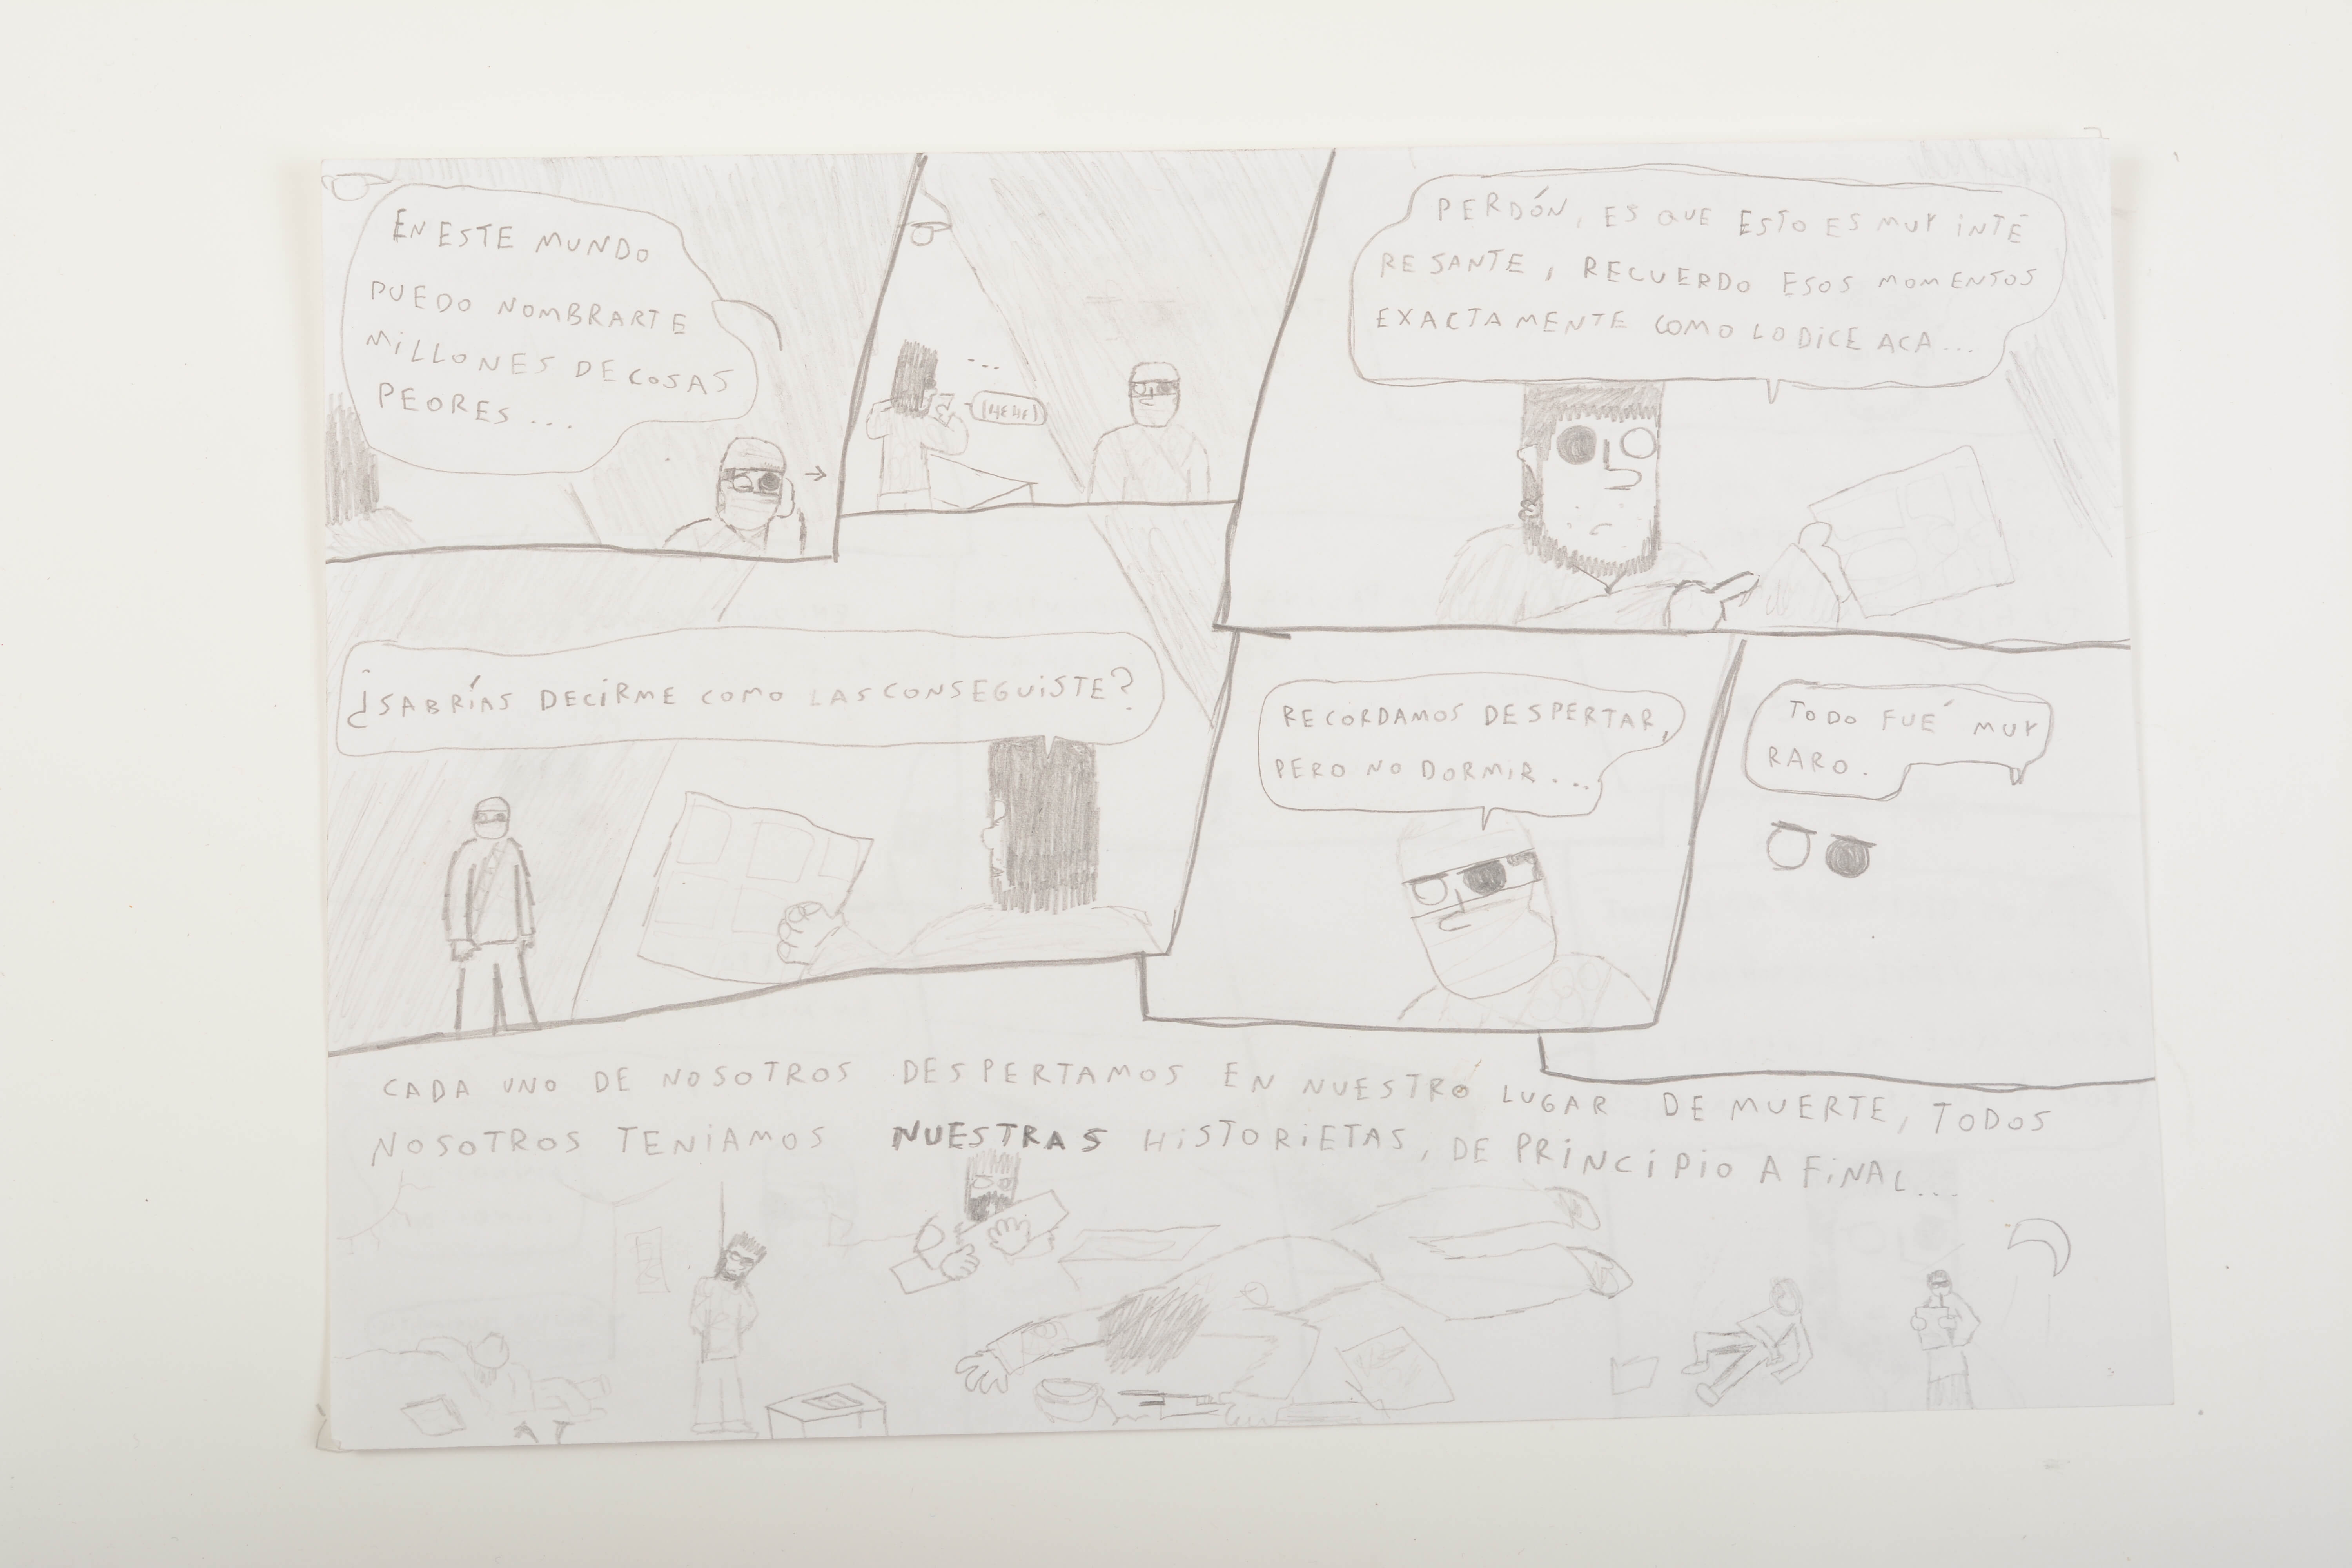 EN ESTE MUNDO
PUEDO NOMBRARTE
MILLONES DE COSAS
PEORES...
...
(HEHE)
PERDÓN, ES QUE ESTO ES MUY INTE
RESANTE, RECUERDO ESOS MOMENTOS
EXACTAMENTE COMO LO DICE ACA...
¿SABRÍAS DECIRME COMO LAS CONSEGUISTE?
RECORDAMOS DESPERTAR,
PERO NO DORMIR...
TODO FUÉ MUY
RARO.
CADA UNO DE NOSOTROS DESPERTAMOS EN NUESTRO LUGAR DE MUERTE, TODOS
NOSOTROS TENIAMOS NUESTRAS HISTORIETAS, DE PRINCIPIO A FINAL...